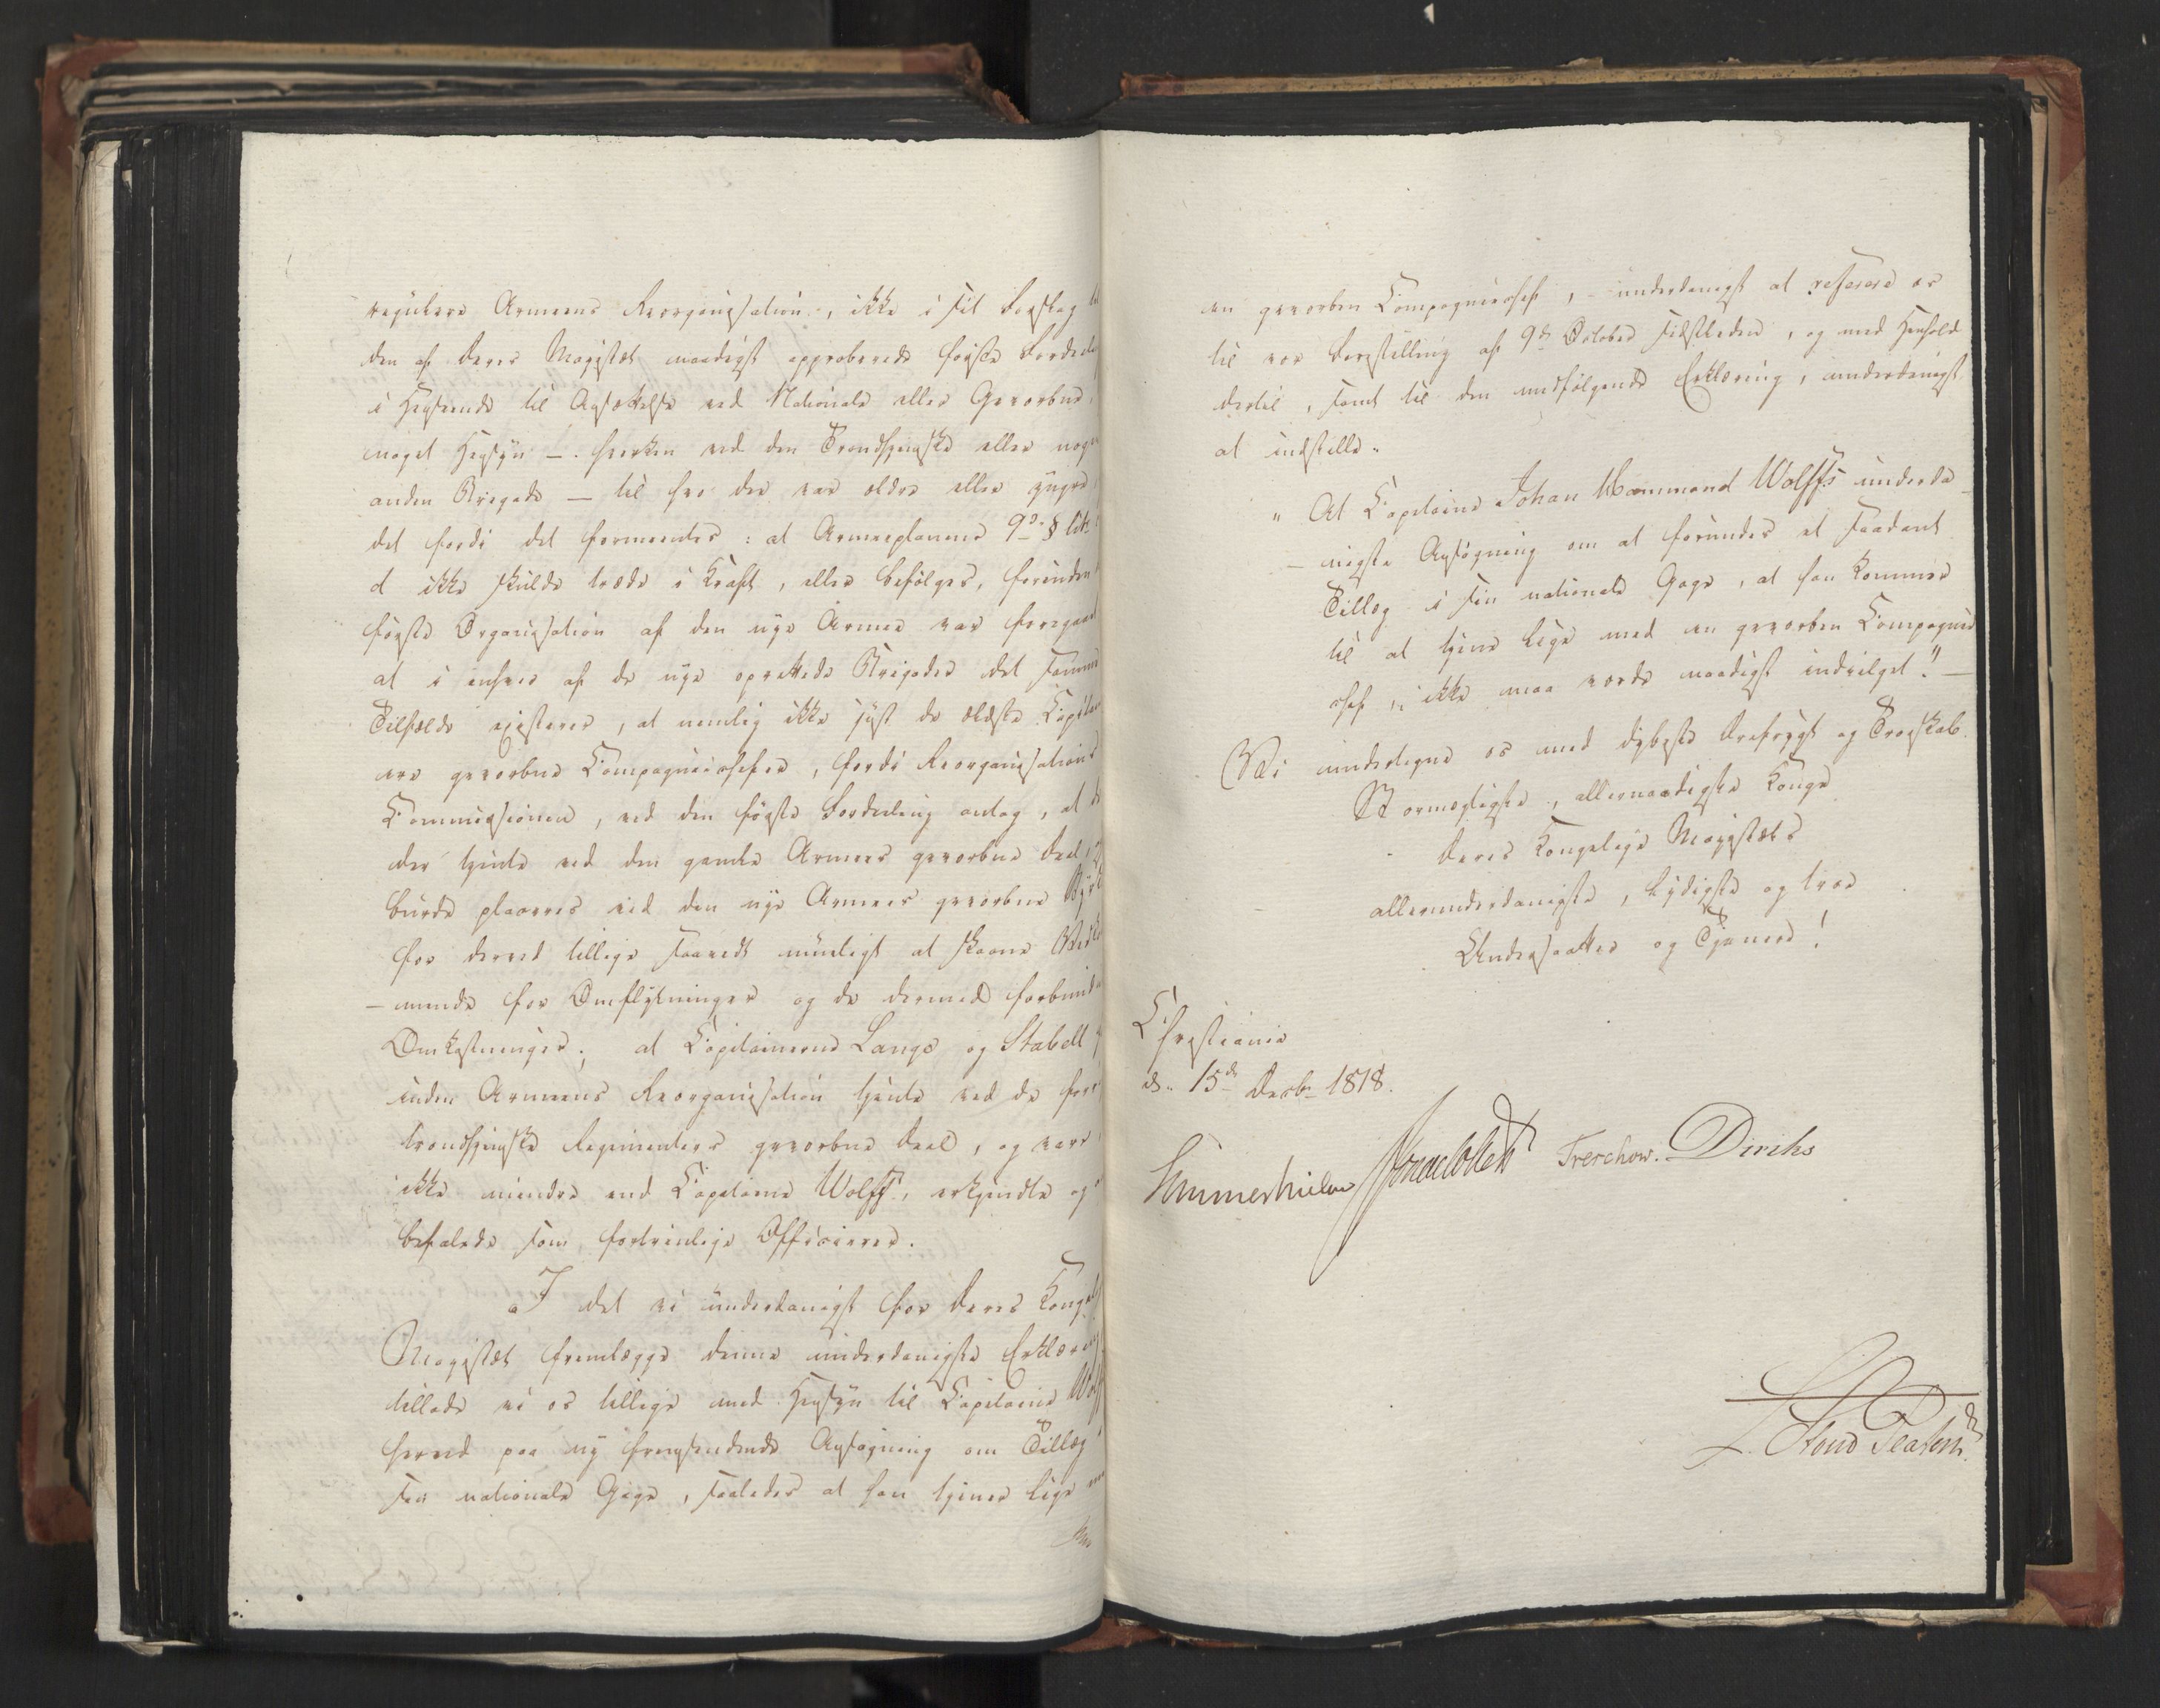 regulære Armeens Reorganisation, ikke i sit Forslag til
den af Deres Majestæt naadigst approberede første Fordeeling
i Henseende til Ansættelse ved Nationale eller Gevorbne,
noget Hensyn – hverken ved den Trondhjemske eller nogen
anden Brigade — til hvo der var ældre eller yngre,
det fordi det formeentes: at Armeeplanens 9de § litr
d ikke skulde træde i Kraft, eller befølges, forinden
første Organisation af den nye Armee var foregaaet
at i enhver af de nye oprettede Brigader det samme
Tilfælde existerer, at nemlig ikke just de ældste Capitainer
ere gevorbne Compagniechefer, fordi Reorganisations
Commissionen, ved den første Fordeeling antog, at de
der tjente ved den gamle Armees gevorbne Deel,
burde placeres ved den nye Armees gevorbne Styrke
for derved tillige saavidt muligt at skaane Vedkom
– mende for Omflytninger og de dermed forbundne
Omkostninger; at Capitainerne Lange og Stabell
inden Armeens Reorganisation tjente ved de forrige
trondhjemske Regimenters gevorbne Deel, og vare
ikke mindre end Capitaine Wolff, erkjendte og
befalede som fortrinlige Officierer.
I det vi underdanigst for Deres Kongelige
Majestæt fremlægge denne underdanigste Erklæring
tillade vi os tillige med Hensyn til Capitaine Wolffs
herved paa ny fremsendende Ansøgning om Tillæg i
sin nationale Gage, saaledes at han tjener lige med
en gevorben Compagniechef, – underdanigst at referere os
til vor Forestilling af 9de October sidstleden, og med Henhold
dertil, samt til den medfølgende Erklæring, underdanigst
at indstille.
" At Capitaine Johan Hammond Wolffs underda
– nigste Ansøgning om at forundes et saadant
Tillæg i sin nationale Gage, at han kommer
til at tjene lige med en gevorben Compagnie
chef, ikke maa vorde naadigst indvilget." —
Vi undertegne os med dybeste Ærefrygt og Troskab.
Stormægtigste, allernaadigste Konge
Deres Kongelige Majestæts
allerunderdanigste, lydigste og troe
Undersaatter og Tjenere!
Christiania
d. 15de Decbr 1818.
Hummerhielm Treschow. Diriks